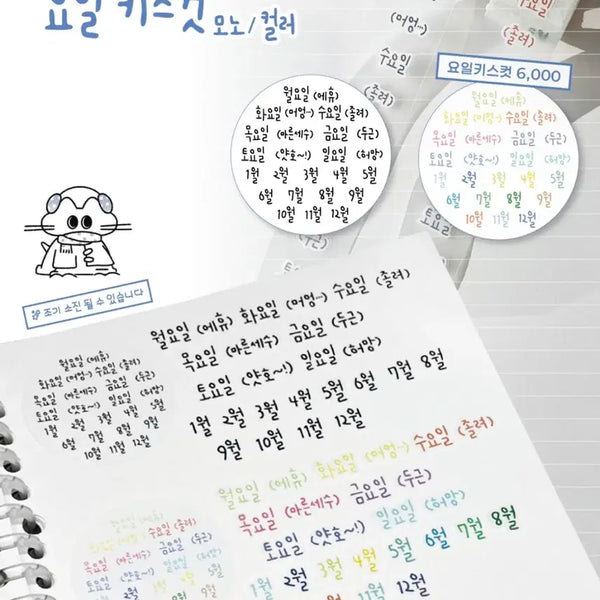 요일 키스컷 모노/컬러
(어멍~)
수요일
(졸려)
(졸려)
요일키스컷 6,000
월요일 (에휴)
화요일 (어멍~) 수요일 (졸려)
목요일 (아른세수) 금요일 (두근)
토요일 (얏호~!) 일요일 (허망)
1월 2월 3월 4월 5월
6월 7월 8월 9월
10월 11월 12월
월요일 (에휴)
화요일 (어멍~) 수요일 (졸려)
목요일 (아른세수) 금요일 (두근)
토요일 (얏호~!) 일요일 (허망)
1월 2월 3월 4월 5월
6월 7월 8월 9월
10월 11월 12월
토요일
(두근)
조기 소진 될 수 있습니다
월요일 (에휴) 화요일 (어멍~) 수요일 (졸려)
목요일 (아른세수) 금요일 (두근)
토요일 (얏호~!) 일요일 (허망)
1월 2월 3월 4월 5월 6월 7월 8월
9월 10월 11월 12월
월요일 (에휴)
화요일 (어멍~) 수요일 (졸려)
목요일 (아른세수) 금요일 (두근)
토요일 (얏호~!) 일요일 (허망)
1월 2월 3월 4월 5월
6월 7월 8월 9월
10월 11월 12월
월요일 (에휴) 화요일 (어멍~) 수요일 (졸려)
목요일 (아른세수) 금요일 (두근)
토요일 (얏호~!) 일요일 (허망)
1월 2월 3월 4월 5월 6월 7월 8월
11월 12월
월요일 (에휴)
화요일 (어멍~) 수요일 (졸려)
목요일 (아른세수) 금요일 (두근)
토요일 (얏호~!) 일요일 (허망)
1월 2월 3월 4월 5월
6월 7월 8월 9월